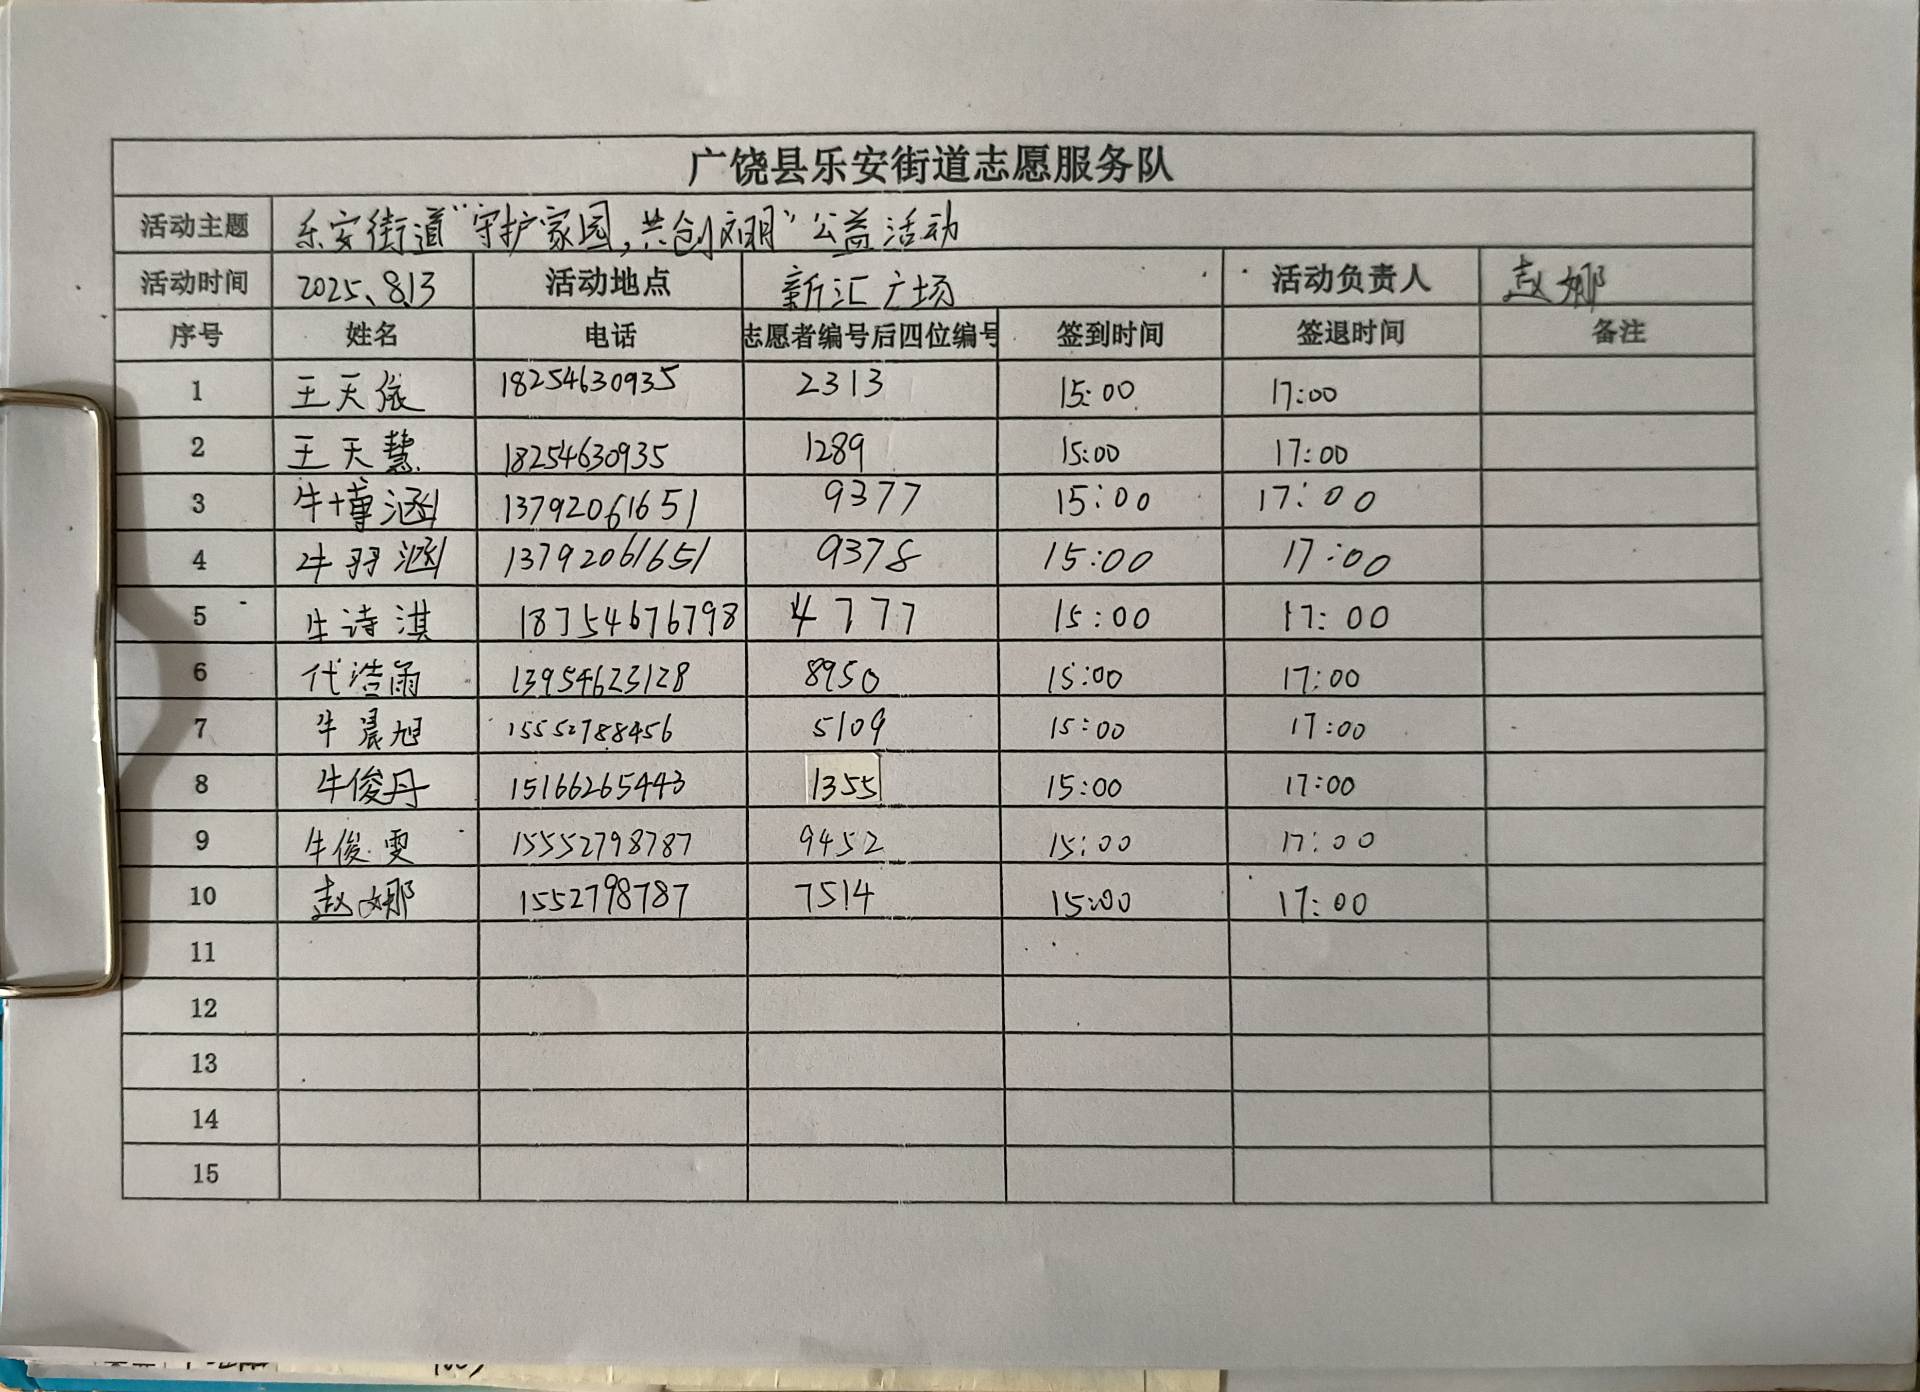 广饶县乐安街道志愿服务队
活动主题 乐安街道“守护家园,共创文明”公益活动
活动时间 2025、8.13 活动地点 新汇广场 活动负责人 赵娜
序号 姓名 电话 志愿者编号后四位编号 签到时间 签退时间 备注
1 王天依 18254630935 2313 15:00 17:00
2 王天慧 18254630935 1289 15:00 17:00
3 牛博涵 13792061651 9377 15:00 17:00
4 牛羽涵 13792061651 9378 15:00 17:00
5 牛诗淇 18754676798 4777 15:00 17:00
6 代浩雨 13954623128 8950 15:00 17:00
7 牛晨旭 15552788456 5109 15:00 17:00
8 牛俊丹 15166265443 1355 15:00 17:00
9 牛俊雯 15552798787 9452 15:00 17:00
10 赵娜 1552798787 7514 15:00 17:00
11
12
13
14
15